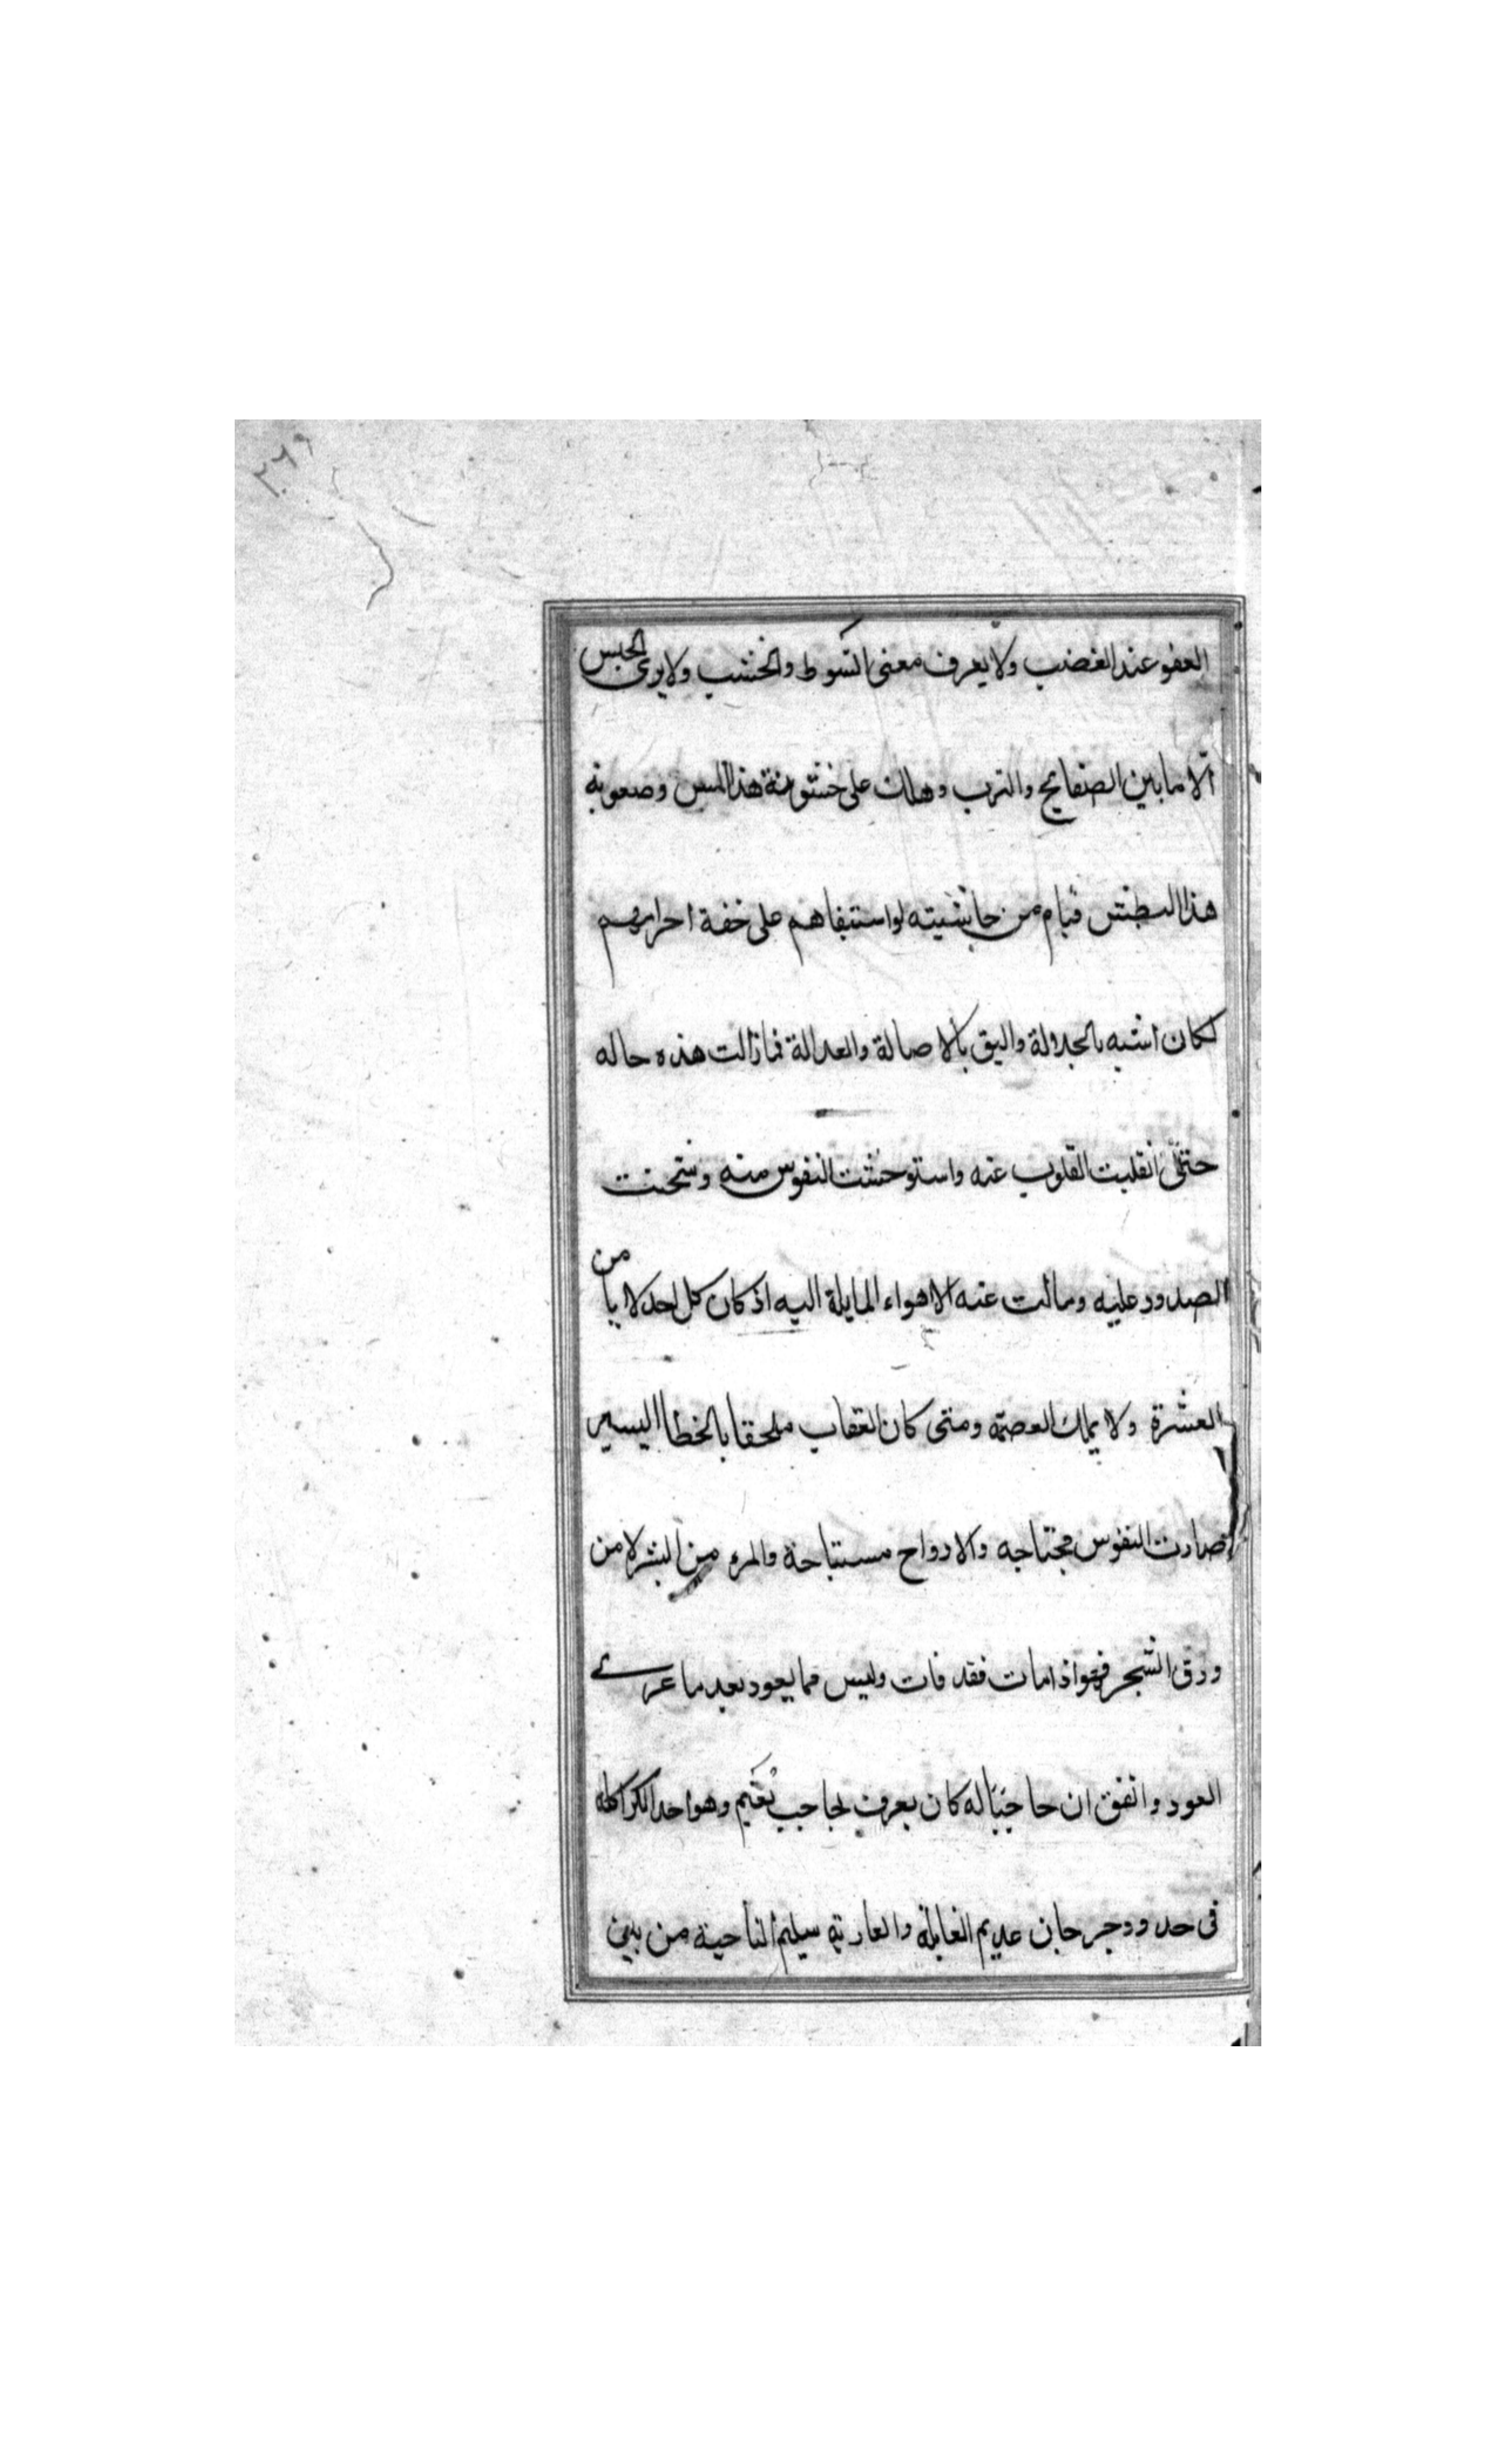 ٢٦٩
العفو عند الغضب ولا يعرف معنى السّوط والخشب ولا يرى الحبس
الّا ما بين الصفايح والترب وهلك على خشونة هذا المس وصعوبة
هذا البطش فيام من حاشيته لو استبقاهم على خفة اجرامهم
لكان اشبه بالجلالة واليق بالاصالة والعدالة فمازالت هذه حاله
حتى انقلبت القلوب عنه واستوحشت النفوس منه وشحنت
الصدور عليه ومالت عنه الاهواء المايلة اليه اذ كان كل احد لا يامن
العشرة ولا يملك العصمة ومتى كان العقاب ملحقا بالخطا اليسير
صارت النفوس مجتاحه والارواح مستباحة والمرء من البشر لا من
ورق الشجر فهو اذا مات فقد فات وليس مما يعود بعد ما عرى
العود واتفق ان حاجبًا له كان يعرف بحاجب نُعَيم وهو احد
فى حدود جرجان عديم الغايلة والعارية سليم الناحية من بين